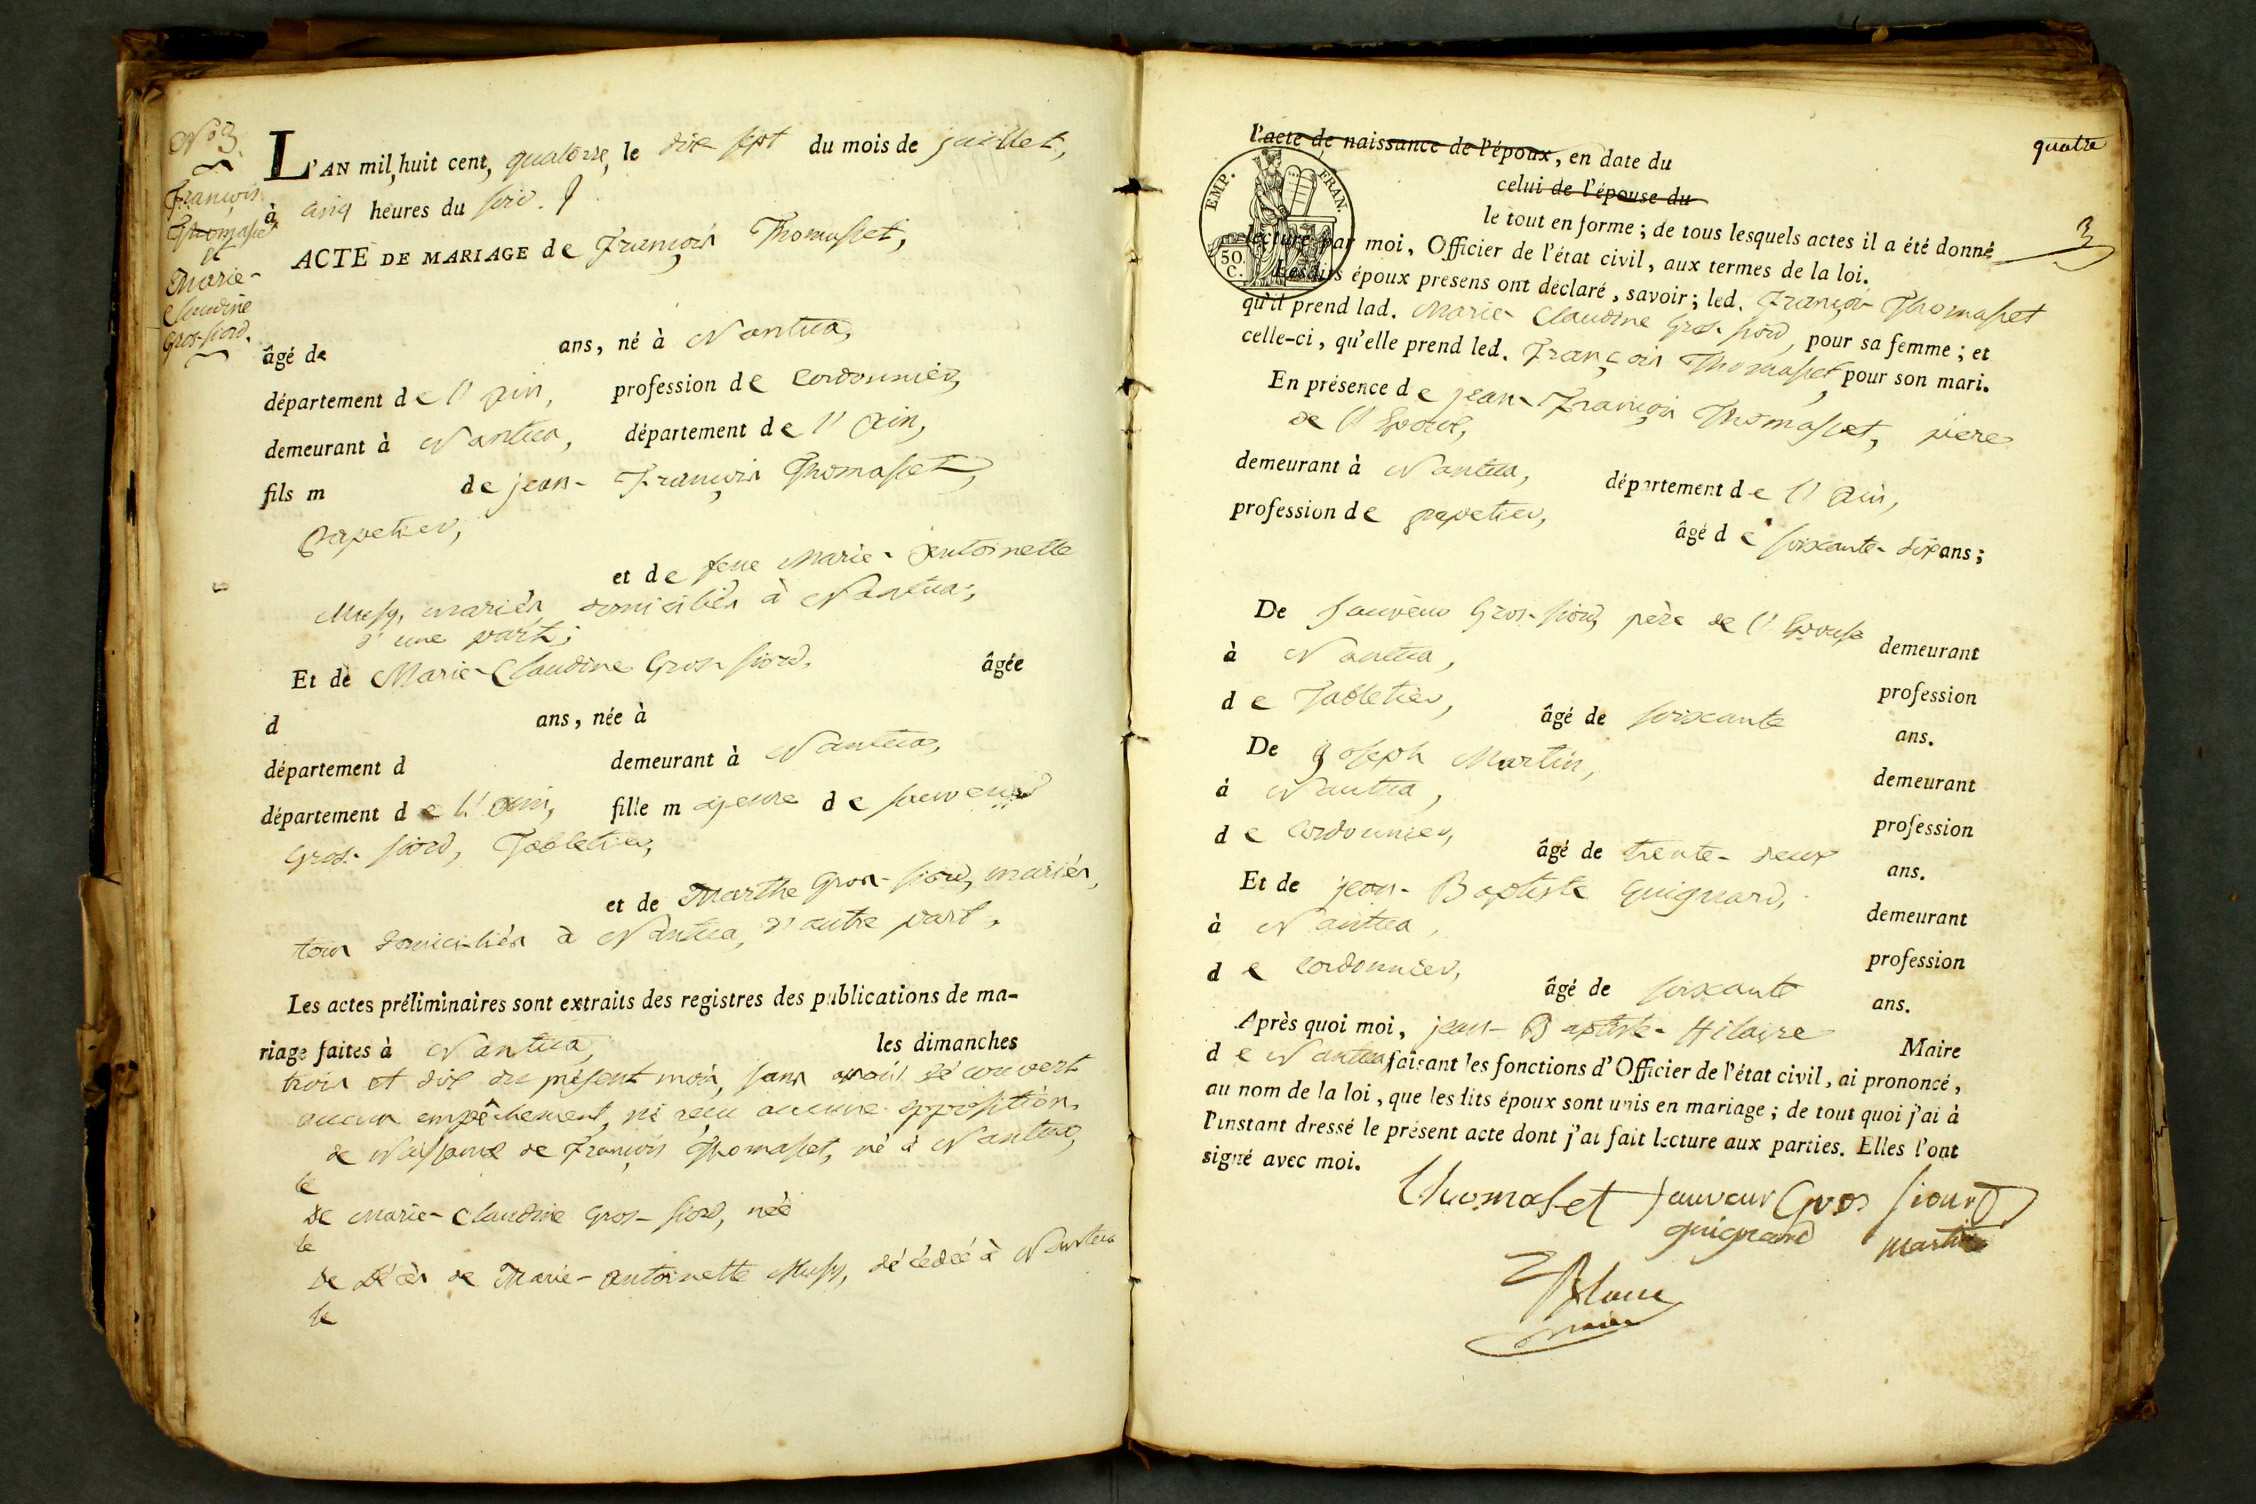 N.° 3.
François
Thomasset
et
Marie-
Claudine
Gros-fiord.
L'AN mil huit cent, quatorze, le dix sept du mois de juillet,
à cinq heures du soir.
ACTE DE MARIAGE de François Thomasset,
âgé de ans, né à Nantua,
département de l'ain, profession de Cordonnier,
demeurant à Nantua, département de l'ain,
fils m de jean-François Thomasset,
papetier,
et de feue Marie-Antoinette
mariés, domiciliés à Nantua,
d'une part;
Et de Marie-Claudine Gros-fiord, âgée
d ans, née à
département d demeurant à Nantua,
département de l'ain, fille majeure de sauveur
Gros-fiord, Tabletier,
et de Marthe Gros-fiord, mariés,
tous domiciliés à Nantua, d'autre part.
Les actes préliminaires sont extraits des registres des publications de ma-
riage faites à Nantua, les dimanches
trois et dix du présent mois, sans avoir découvert
aucun empêchement, ni reçu aucune opposition.
de Naissance de François Thomasset, né à Nantua,
le
de Marie-Claudine Gros-fiord, née
le
de décès de Marie-antoinette décédée à Nantua
le
quatre
3
l'acte de naissance de l'époux, en date du
celui de l'épouse du
EMP. FRAN.
50.
C.
le tout en forme; de tous lesquels actes il a été donné
lecture par moi, Officier de l'état civil, aux termes de la loi.
Lesdits époux présens ont déclaré, savoir; led. François Thomasset
qu'il prend lad. Marie-Claudine Gros-fiord, pour sa femme; et
celle-ci, qu'elle prend led. François Thomasset pour son mari.
En présence de jean-François Thomasset, père
de l'Epoux,
demeurant à Nantua, département de l'ain,
profession de papetier, âgé de soixante-dix ans;
De sauveur Gros-fiord, père de l'Epouse demeurant
à Nantua, profession
de Tabletier, âgé de soixante ans.
De joseph Martin, demeurant
à Nantua, profession
de Cordonnier, âgé de trente-deux ans.
Et de jean-Baptiste Guignard, demeurant
à Nantua, profession
de Cordonnier, âgé de soixante ans.
Après quoi moi, jean-Baptiste-Hilaire Maire
de Nantua faisant les fonctions d'Officier de l'état civil, ai prononcé,
au nom de la loi, que lesdits époux sont unis en mariage; de tout quoi j'ai à
l'instant dressé le présent acte dont j'ai fait lecture aux parties. Elles l'ont
signé avec moi.
thomaset sauveur Gros fiourd
guignard martin